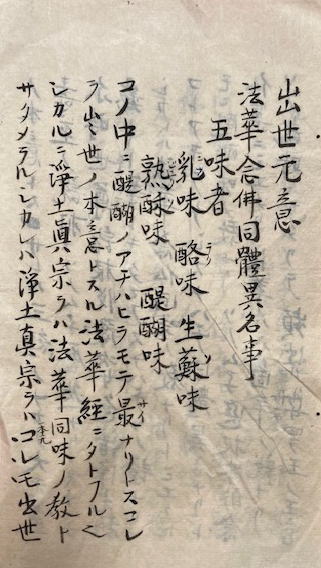 出世元意
法華念佛同體異名事
五味者
乳味 酪味 生蘇味
熟酥味 醍醐味
コノ中ニ醍醐ノアチハヒヲモテ最ナリトスコレ
ヲ出世ノ本意トスル法華経ニタトフル
シカルニ浄土真宗ヲハ法華同味ノ教ト
サタメラルシカレハ浄土真宗ヲハコレモ出世